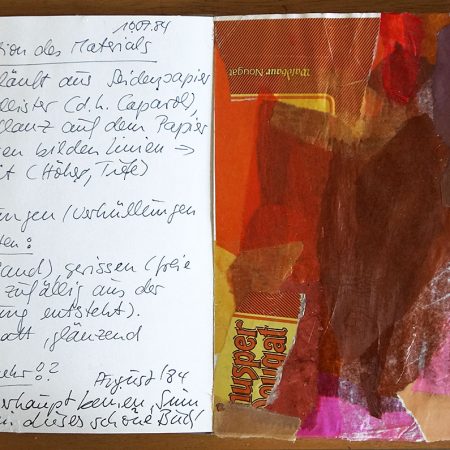 10.07.84
tion des Materials
läuft aus Seidenpapier
leister (d.h. Caparol),
lanz auf dem Papier
en bilden Linien →
it (Höhe, Tiefe)
ungen / Verhüllungen
ten:
and), gerissen (freie
zufällig aus der
ung entsteht).
att, glänzend
mehr!?
August/84
erhaupt keinen Sinn
dieses schöne Buch
Waldbaur Nougat
nusper
ougat